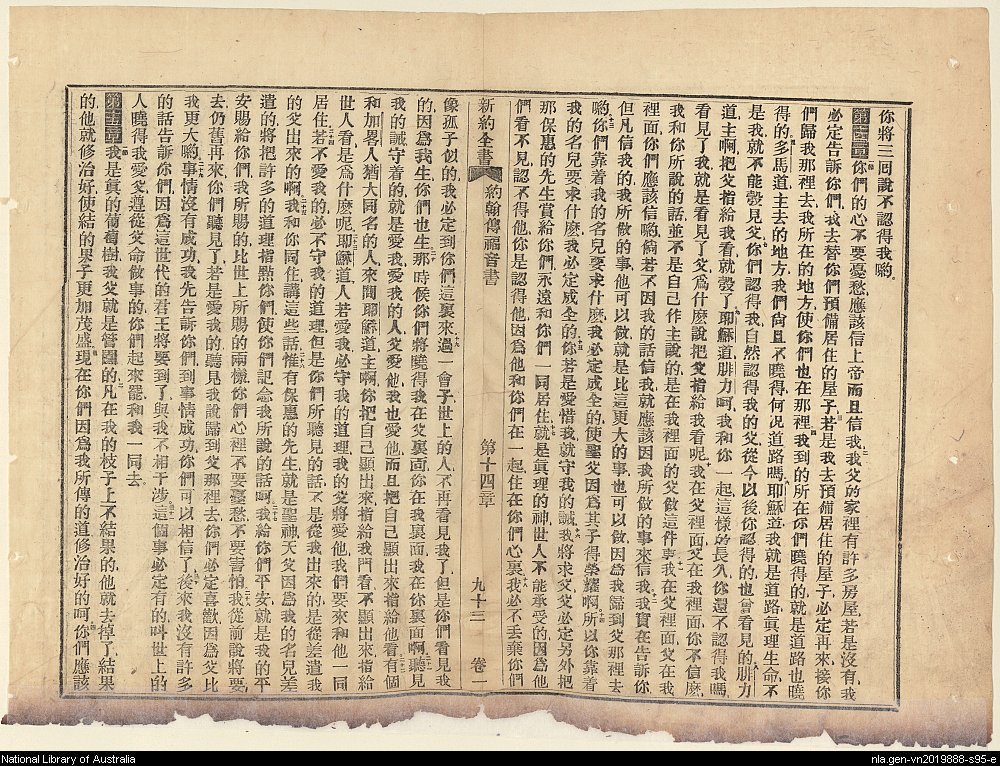 你將三回說不認得我喲
第十四章你們的心不要憂愁應該信上帝而且信我我父的家裡有許多房屋若是沒有我
必定告訴你們我去替你們預備居住的屋子若是我去預備居住的屋子必定再來接你
們歸我那裡去我所在的地方使你們也在那裡我到的所在你們曉得的就是道路也曉
得的多馬道主去的地方我們尙且不曉得何况道路嗎耶穌道我就是道路眞理生命不
是我就不能彀見父你們認得我自然認得我的父從今以後你認得的也曾看見的腓力
道主啊把父指給我看就彀了耶穌道腓力呵我和你一起這樣的長久你還不認得我嗎
看見了我就是看見了父爲什麽說把父指給我看呢我在父裡面父在我裡面你不信麽
我和你所說的話並不是自己作主說的是在我裡面的父做這件事我在父裡面父在我
裡面你們應該信喲倘若不因我的話信我就應該因我所做的事來信我我實在告訴你
但凡信我的我所做的事他可以做就是比這更大的事也可以做因爲我歸到父那裡去
喲你們靠着我的名兒要求什麽我必定成全的使聖父因爲其子得榮耀啊所以你靠着
我的名兒要求什麽我必定成全的你若是愛惜我就守我的誡我將求父父必定另外把
那保惠的先生賞給你們永遠和你們一同居住就是眞理的神世人不能承受的因爲他
們看不見認不得他你是認得他因爲他和你們在一起住在你們心裏我必不丢棄你們
新約全書 約翰傳福音書 第十四章 九十三 卷一
像孤子似的我必定到你們這裏來過一會子世上的人不再看見我了但是你們看見我
的因爲我生你們也生那時候你們將曉得我在父裏面你在我裏面我在你裏面啊聽見
我的誡守着的就是愛我愛我的人父愛他我也愛他而且把自己顯出來指給他看有個
加畧人猶大同名的人來問耶穌道主啊你把自己顯出來指給我們看不顯出來指給
世人看是爲什麽呢耶穌道人若愛我必守我的道理我的父將愛他我們要來和他一同
居住若不愛我的必不守我的道理但是你們所聽見的話不是從我出來的是從差遣我
的父出來的啊我和你同住講這些話惟有保惠的先生就是聖神天父因爲我的名兒差
遣的將把許多的道理指點你們使你們記念我所說的話呵我給你們平安就是我的平
安賜給你們我所賜的比世上所賜的兩樣你們心裡不要憂愁不要害怕我從前說將要
去仍舊再來你們聽見了若是愛我的聽見我說歸到父那裡去你們必定喜歡因爲父比
我更大喲事情沒有成功我先告訴你們到事情成功你們可以相信了後來我沒有許多
的話告訴你們因爲這世代的君王將要到了與我不相干涉這個事必定有的叫世上的
人曉得我愛父遵從父命做事的你們起來罷和我一同去
第十五章我是眞的葡萄樹我父就是管園的凡在我的枝子上不結果的他就去掉了結果
的他就修治好使結的果子更加茂盛現在你們因爲我所傳的道修治好的呵你們應該
National Library of Australia
nla.gen-vn2019888-s95-e